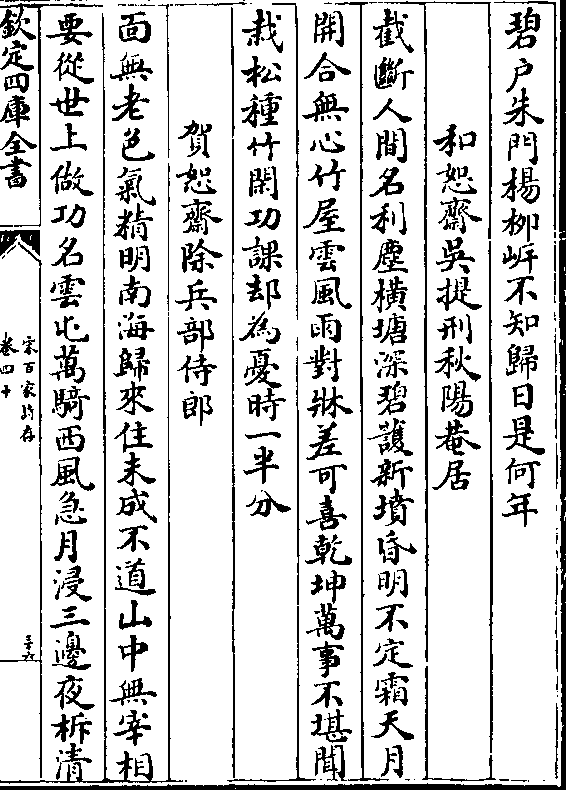 碧戶朱門楊柳岍不知歸日是何年
和恕齋吳提刑秋陽菴居
截斷人間名利塵橫塘深碧護新墳昏明不定霜天月
開合無心竹屋雲風雨對牀差可喜乾坤萬事不堪聞
栽松種竹閑功課却為憂時一半分
賀恕齋除兵部侍郎
面無老色氣精明南海歸來住未成不道山中無宰相
要從世上做功名雲屯萬騎西風急月浸三邊夜柝清
欽定四庫全書
宋百家詩存
卷四十
三六